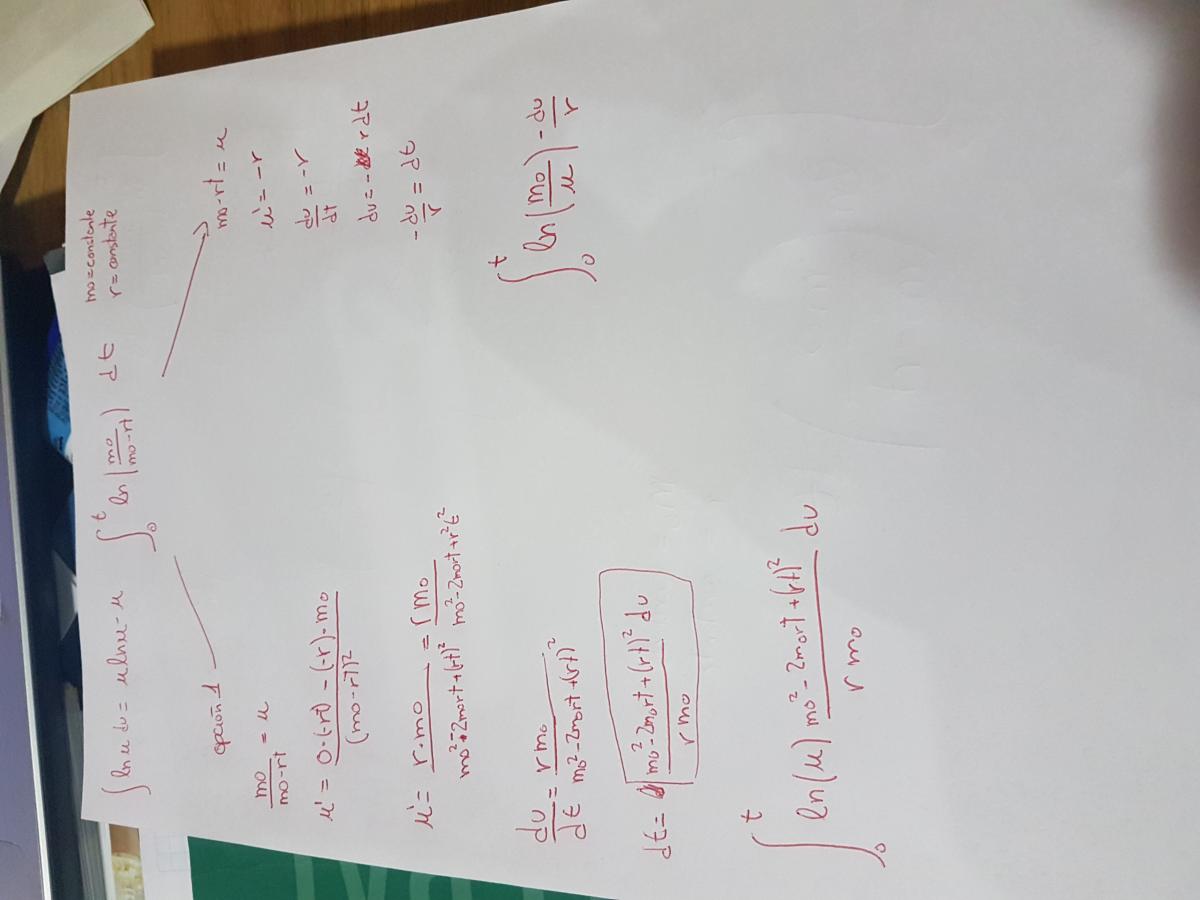 ∫ ln u du = u ln u - u   ∫₀ᵗ ln(m0/(m0-rt)) dt   m0=constante
r=constante
opción 1
m0/(m0-rt) = u
u' = (0·(-rt) - (-r)·m0)/(m0-rt)²
u' = (r·m0)/(m0²-2m0rt+(rt)²) = (rm0)/(m0²-2m0rt+r²t²)
du/dt = (rm0)/(m0²-2m0rt+(rt)²)
dt = (m0²-2m0rt+(rt)²)/(rm0) du
∫₀ᵗ ln(u) (m0²-2m0rt+(rt)²)/(rm0) du
m0-rt = u
u' = -r
du/dt = -r
du = - r dt
-du/r = dt
∫₀ᵗ ln(m0/u) -du/r